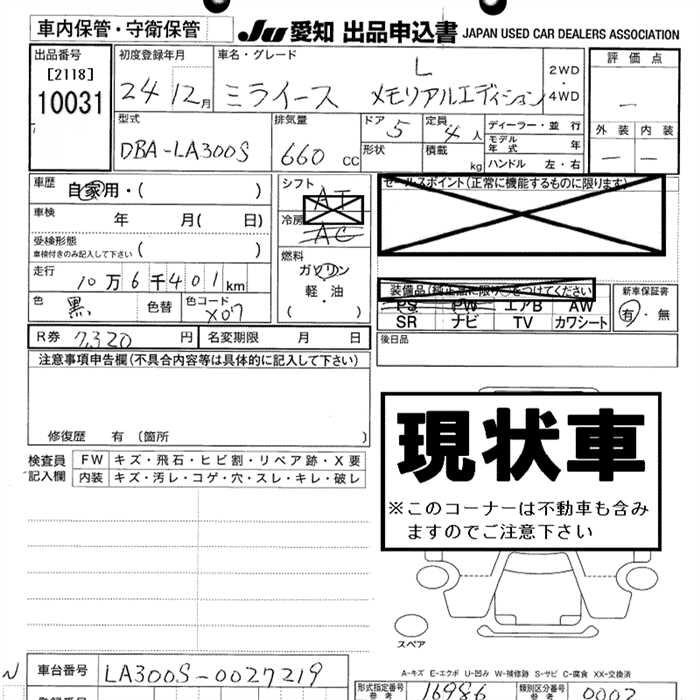 車内保管・守衛保管
JU 愛知 出品申込書 JAPAN USED CAR DEALERS ASSOCIATION
出品番号
[2118]
10031
初度登録年月
24 12月
車名・グレード
ミライース L メモリアルエディション
2WD
・
4WD
評価点
—
外装 内装
— —
型式
DBA-LA300S
排気量
660 cc
ドア 5
定員 4人
形状
積載 kg
ディーラー・並行
モデル年式 年
ハンドル 左・右
車歴 自家用・( )
車検 年 月( 日)
受検形態
車検付きのみ記入して下さい ( )
走行 10万6千401km
色 黒
色替
色コード X07
シフト AT
冷房 AC
燃料
ガソリン
軽・油
( )
セールスポイント(正常に機能するものに限ります)
装備品(純正品に限り○をつけてください)
PS PW エアB AW
SR ナビ TV カワシート
新車保証書
有・無
後日品
R券 7,320 円
名変期限 月 日
注意事項申告欄(不具合内容等は具体的に記入して下さい)
修復歴 有(箇所 )
検査員記入欄
FW キズ・飛石・ヒビ割・リペア跡・X要
内装 キズ・汚レ・コゲ・穴・スレ・キレ・破レ
現状車
※このコーナーは不動車も含み
ますのでご注意下さい
スペア
A-キズ E-エクボ U-凹み W-補修跡 S-サビ C-腐食 XX-交換済
N
車台番号 LA300S-0027219
型式指定番号
参考
16986
類別区分番号
参考
0002